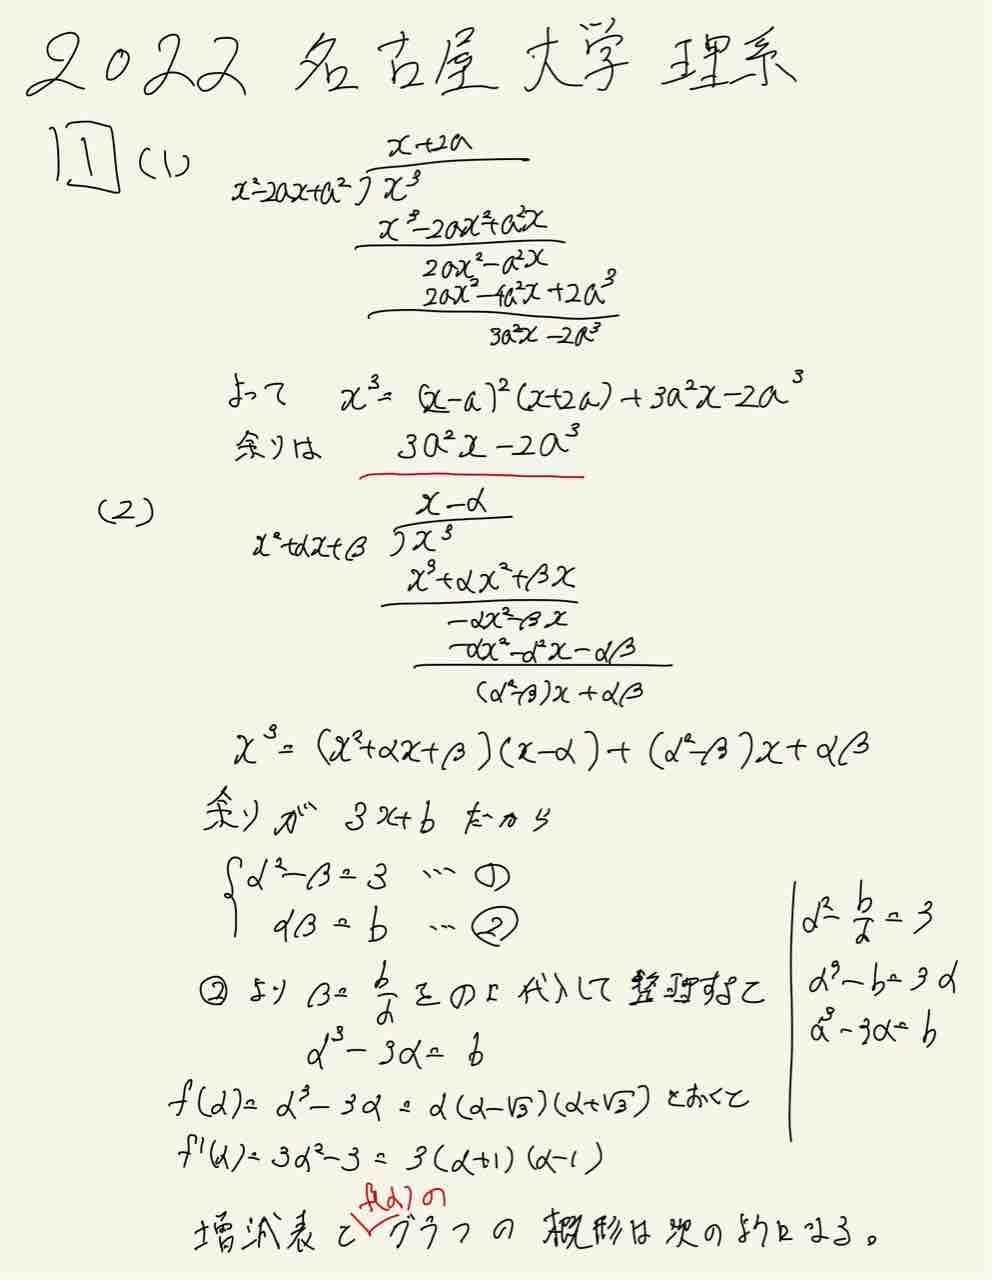 2022 名古屋大学 理系
1 (1)
x+2a
x²-2ax+a² ) x³
x³-2ax²+a²x
2ax²-a²x
2ax²-4a²x+2a³
3a²x-2a³
よって x³= (x-a)²(x+2a)+3a²x-2a³
余りは 3a²x-2a³
(2)
x-α
x²+αx+β ) x³
x³+αx²+βx
-αx²-βx
-αx²-α²x-αβ
(α²-β)x+αβ
x³= (x²+αx+β)(x-α)+(α²-β)x+αβ
余りが 3x+b だから
α²-β=3 … ①
αβ=b … ②
②より β=b/α を①に代入して整理すると
α³-3α=b
α²-b/α=3
α³-b=3α
α³-3α=b
f(α)=α³-3α=α(α-√3)(α+√3)とおくと
f'(α)=3α²-3=3(α+1)(α-1)
増減表と f(α)の グラフの概形は次のようになる。